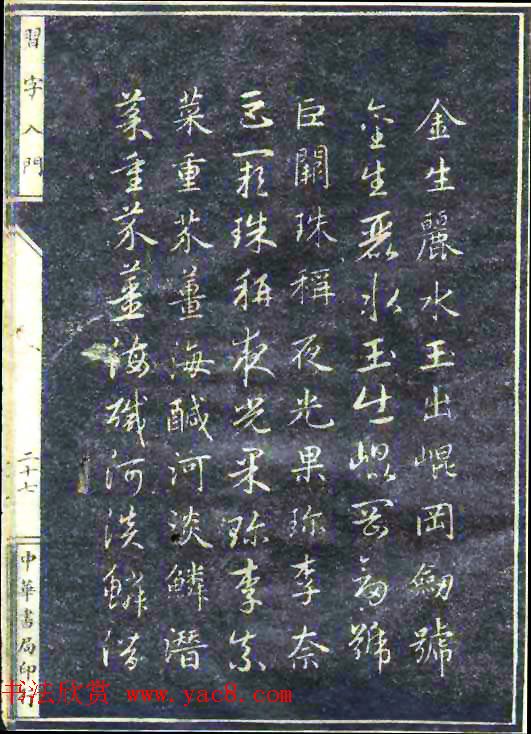 金生麗水玉出崐岡劒號
金生麗水玉出崐岡劒號
巨闕珠稱夜光果珍李柰
巨闕珠稱夜光果珍李柰
菜重芥薑海鹹河淡鱗潛
菜重芥薑海鹹河淡鱗潛
習字入門
二十七
中華書局印行
书法欣赏 www.yac8.com